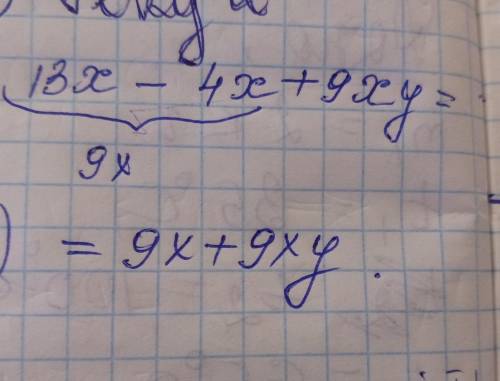 13x - 4x + 9xy =
9x
) = 9x + 9xy.